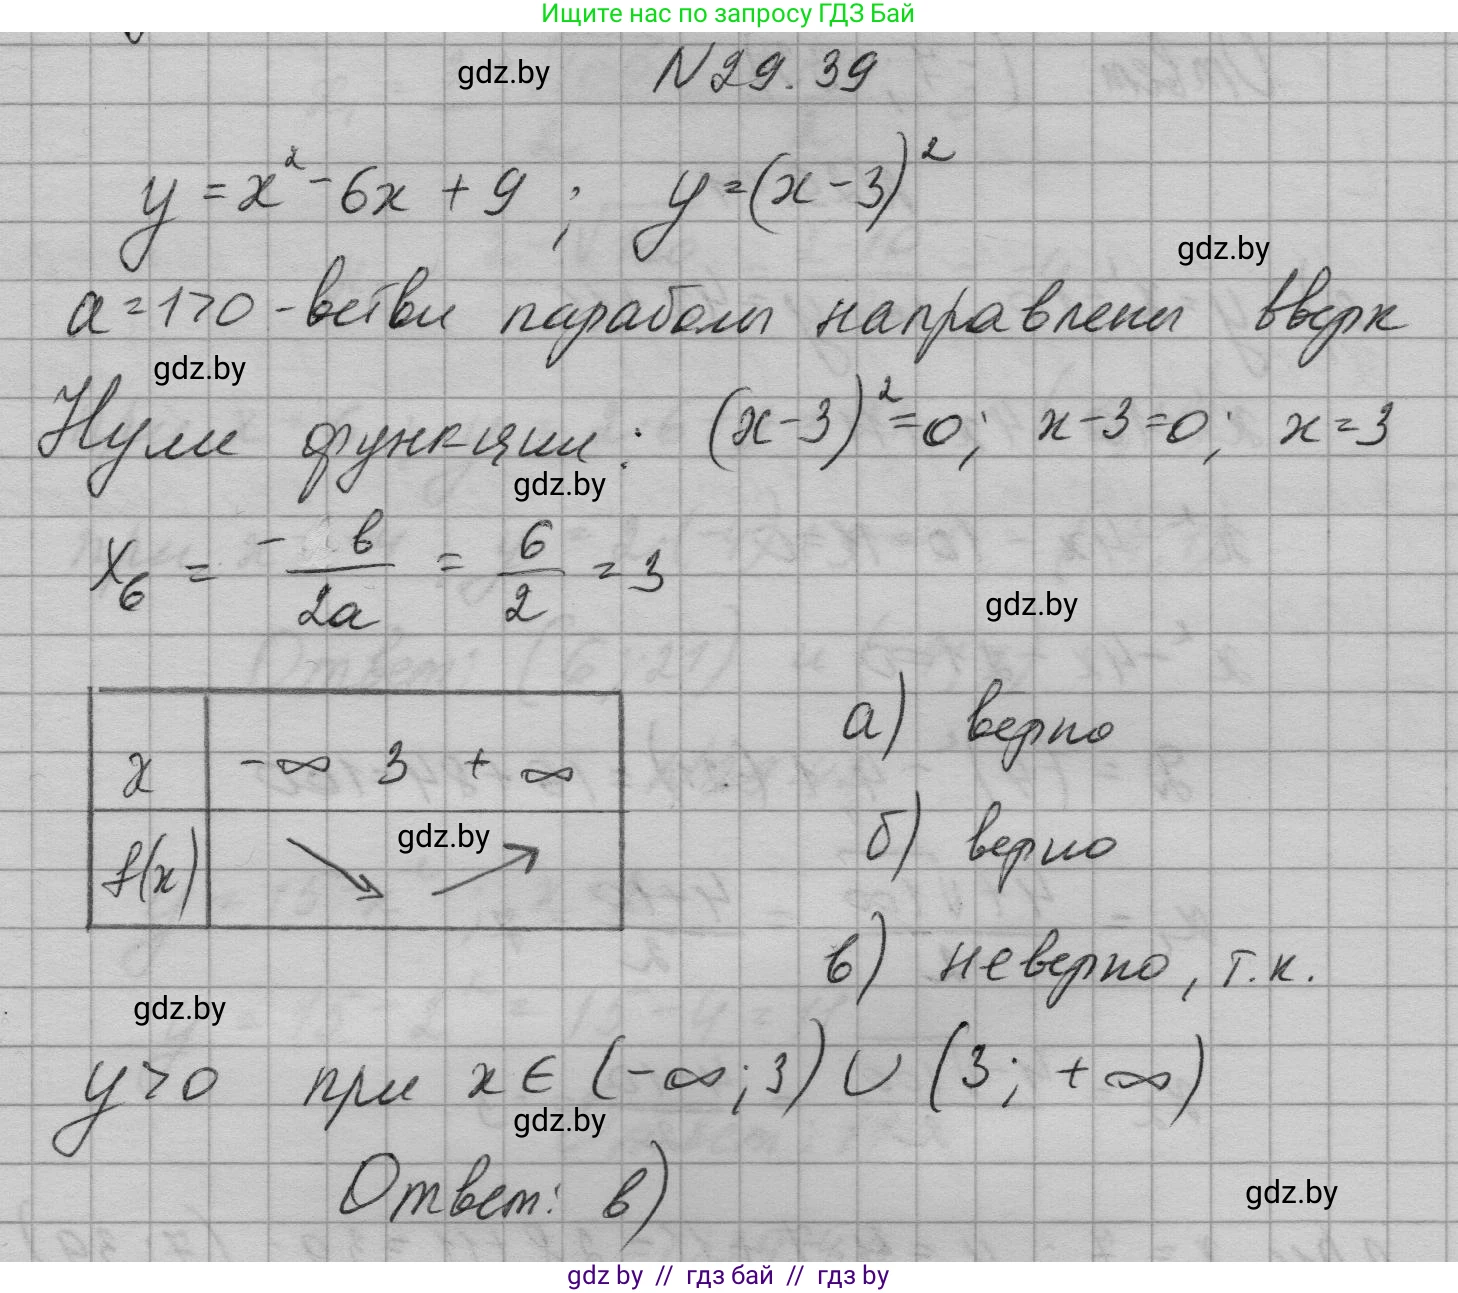 Ищите нас по запросу ГДЗ Бай
gdz.by
N 29.39
y = x² - 6x + 9 ; y = (x - 3)²
gdz.by
a = 1 > 0 - ветви параболы направлены вверх
gdz.by
Нули функции: (x - 3)² = 0; x - 3 = 0; x = 3
gdz.by
x₆ = - в/2a = 6/2 = 3
gdz.by
x -∞ 3 +∞
а) верно
f(x) ↘ ↗
gdz.by
б) верно
в) неверно, т.к.
gdz.by
y > 0 при x ∈ (-∞; 3) ∪ (3; +∞)
gdz.by
Ответ: в)
gdz.by
gdz by // гдз бай // гдз by